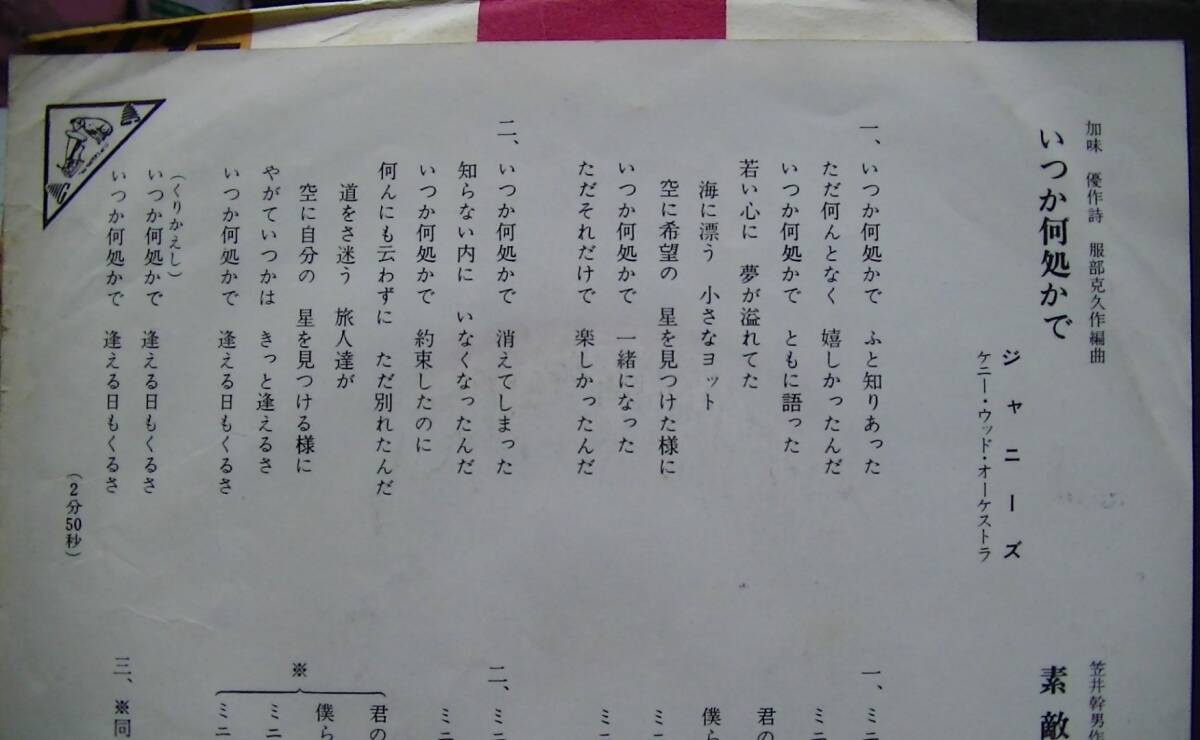 加味 優作詩 服部克久作編曲
いつか何処かで
ジャニーズ
ケニー・ウッド・オーケストラ
一、いつか何処かで ふと知りあった
ただ何んとなく 嬉しかったんだ
いつか何処かで ともに語った
若い心に 夢が溢れてた
海に漂う 小さなヨット
空に希望の 星を見つけた様に
いつか何処かで 一緒になった
ただそれだけで 楽しかったんだ
二、いつか何処かで 消えてしまった
知らない内に いなくなったんだ
いつか何処かで 約束したのに
何んにも云わずに ただ別れたんだ
道をさ迷う 旅人達が
空に自分の 星を見つける様に
やがていつかは きっと逢えるさ
いつか何処かで 逢える日もくるさ
(くりかえし)
いつか何処かで 逢える日もくるさ
いつか何処かで 逢える日もくるさ
(2分50秒)
笠井幹男作
素敵
一、ミニ
ミニ
君の
僕ら
ミニ
ミニ
二、ミニ
ミニ
※
君の
僕ら
ミニ
ミニ
三、※同